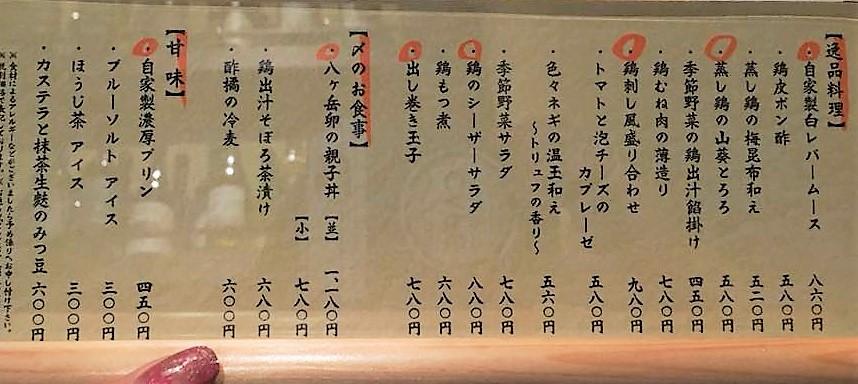 【逸品料理】
・自家製白レバームース 八六〇円
・鶏皮ポン酢 五八〇円
・蒸し鶏の梅昆布和え 五二〇円
・蒸し鶏の山葵とろろ 五八〇円
・季節野菜の鶏出汁餡掛け 四五〇円
・鶏むね肉の薄造り 七八〇円
・鶏刺し風盛り合わせ 九八〇円
・トマトと泡チーズの
カプレーゼ 五八〇円
・色々ネギの温玉和え
〜トリュフの香り〜 五六〇円
・季節野菜サラダ 七八〇円
・鶏のシーザーサラダ 八八〇円
・鶏もつ煮 六八〇円
・出し巻き玉子 七八〇円
【〆のお食事】
・八ヶ岳卵の親子丼 【並】 一、一八〇円
【小】 七八〇円
・鶏出汁そぼろ茶漬け 六八〇円
・酢橘の冷麦 六〇〇円
【甘味】
・自家製濃厚プリン 四五〇円
・ブルーソルト アイス 三〇〇円
・ほうじ茶 アイス 三〇〇円
・カステラと抹茶生麩のみつ豆 六〇〇円
※食材によるアレルギーなどがございましたら予め係りへお申し付け下さい。